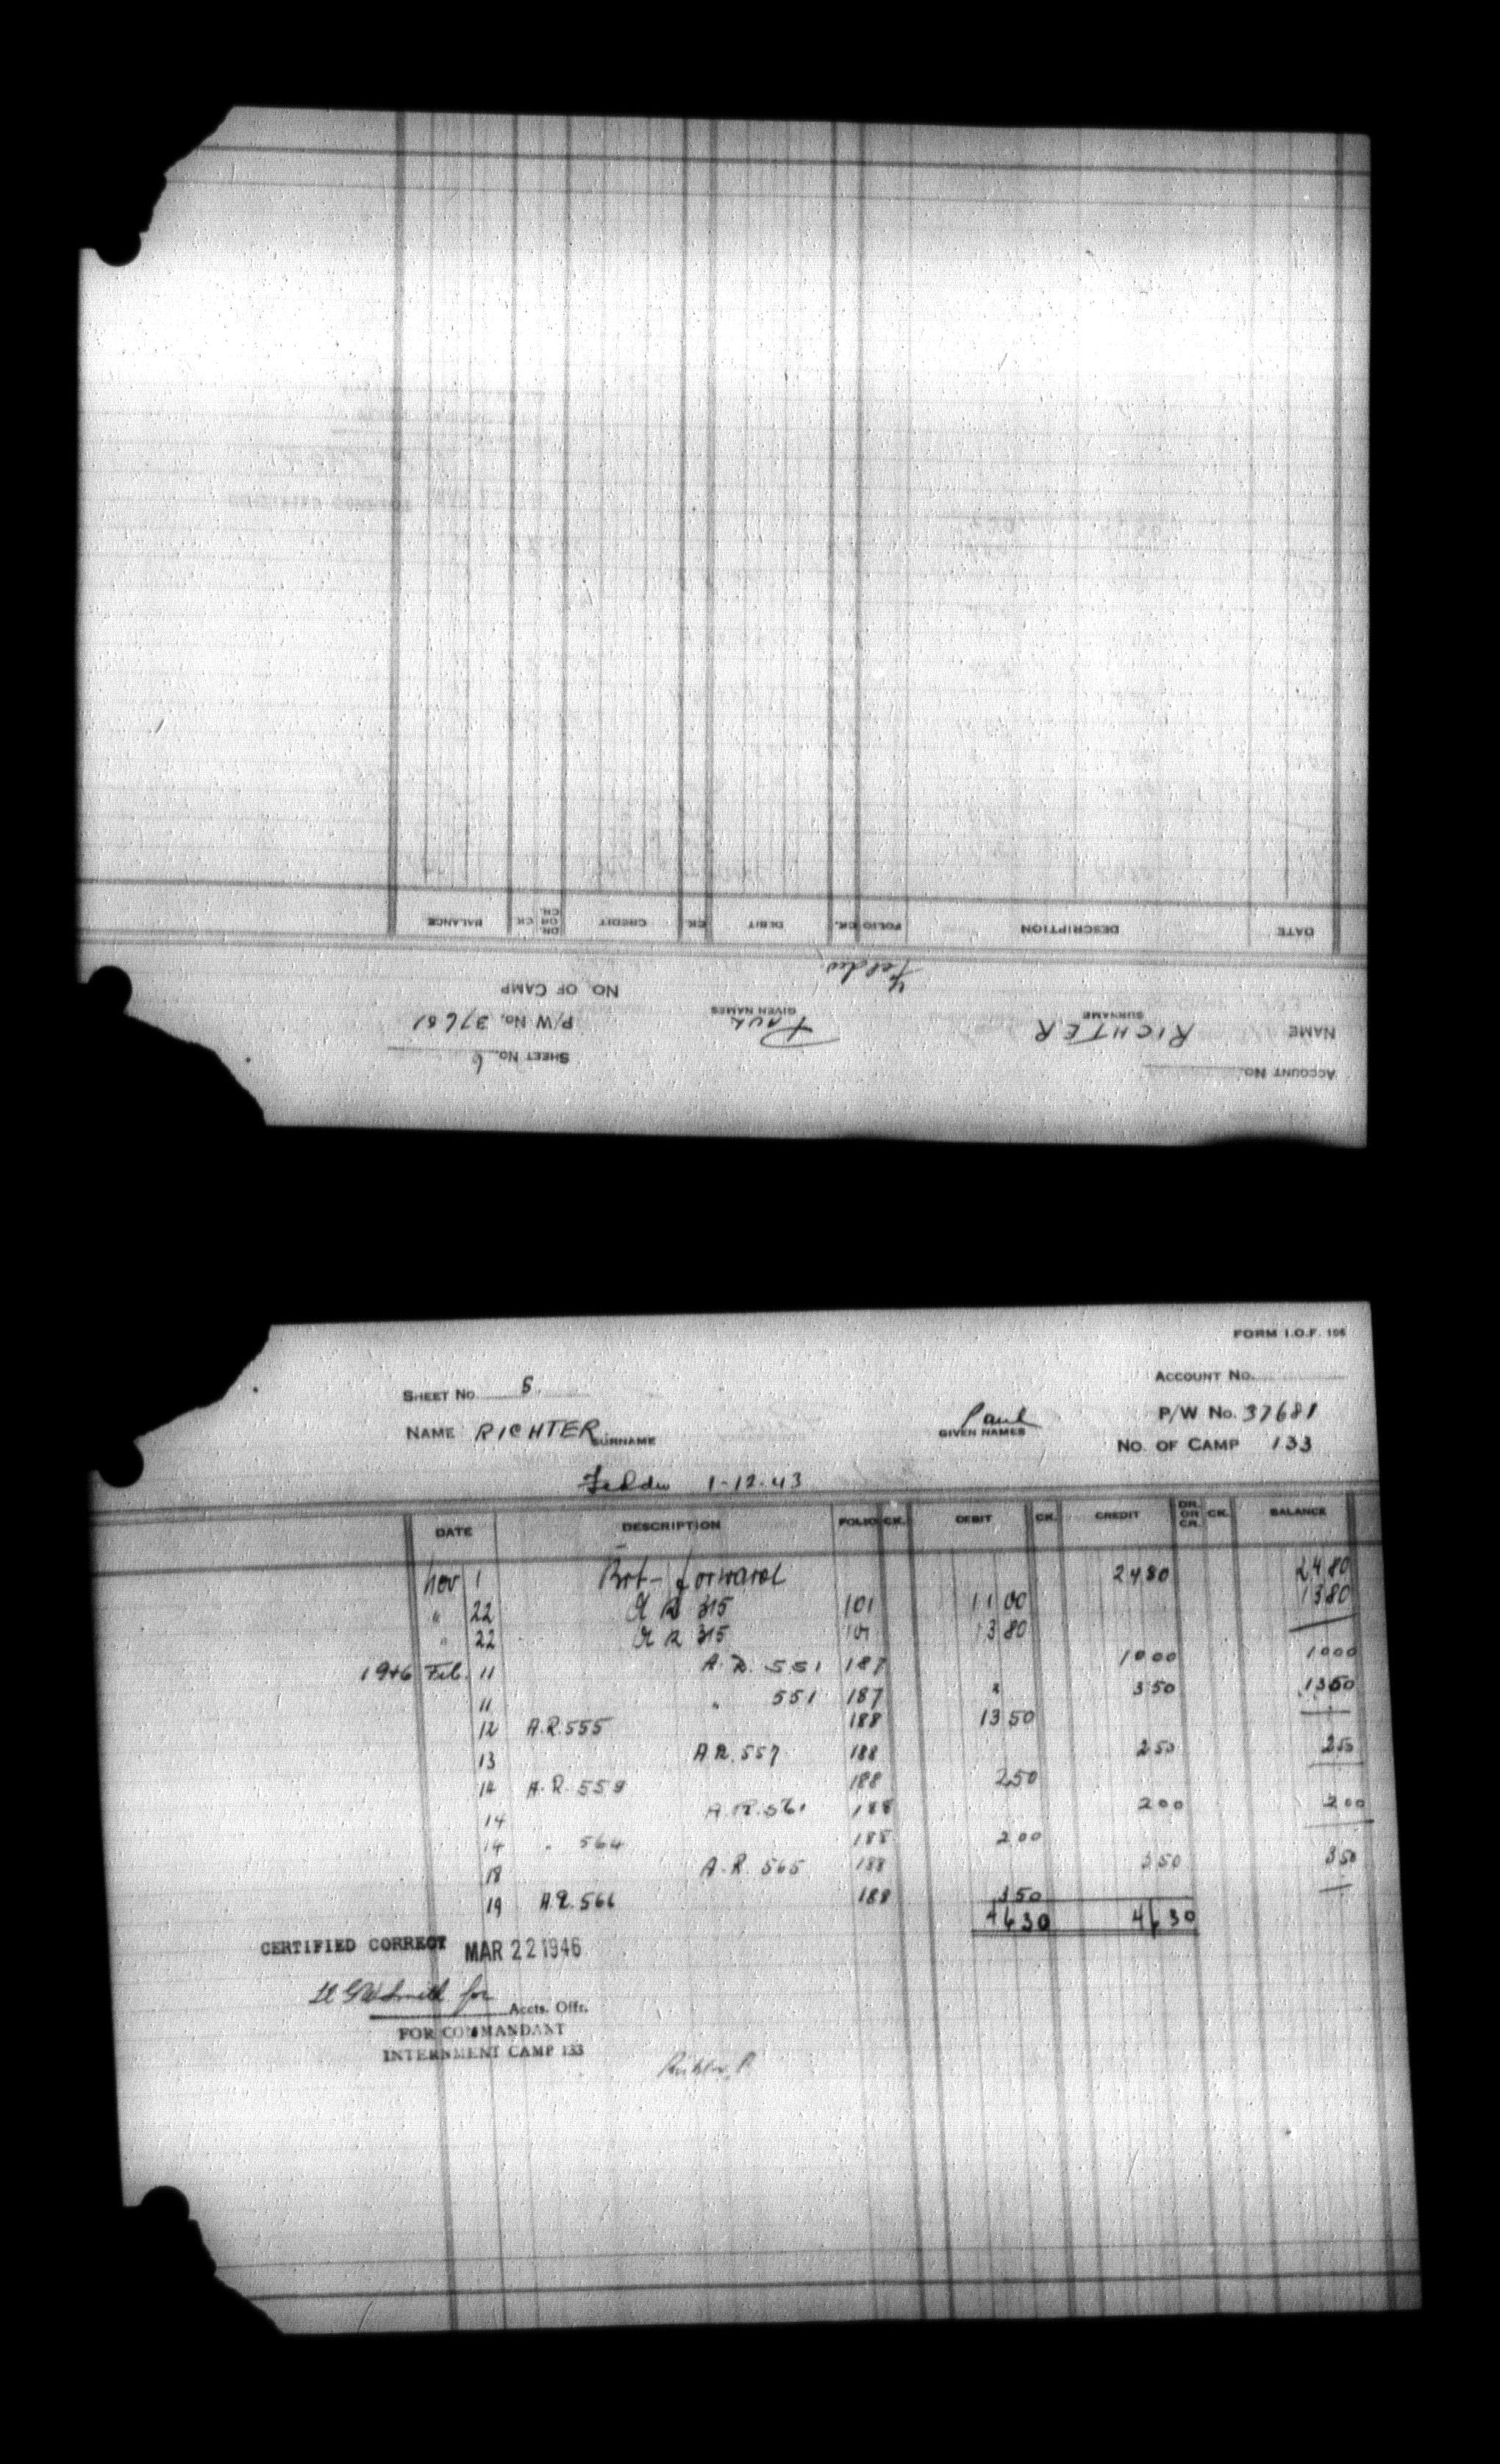 ACCOUNT No.
SHEET No. 6
NAME RICHTER SURNAME
Paul GIVEN NAMES
P/W No. 37681
NO. OF CAMP
DATE DESCRIPTION FOLIO CK. DEBIT CK. CREDIT DR. OR CR. CK. BALANCE
FORM I.O.F. 106
SHEET No. 5. ACCOUNT No.
NAME RICHTER SURNAME Paul GIVEN NAMES P/W No. 37681
NO. OF CAMP 133
1-12-43
DATE DESCRIPTION FOLIO CK. DEBIT CK. CREDIT DR. OR CR. CK. BALANCE
Nov 1 Brt-forward 24 80 24 80
" 22 A R 315 101 11 00 13 80
" 22 A R 315 101 13 80
1946 Feb. 11 A.R. 551 187 10 00 10 00
11 " 551 187 " 3 50 13 50
12 A.R. 555 188 13 50
13 A.R. 557 188 2 50 2 50
14 A.R. 559 188 2 50
14 A.R. 561 188 2 00 2 00
14 " 564 188 2 00
18 A.R. 565 188 3 50 3 50
19 A.R. 566 188 3 50
46 30 46 30
CERTIFIED CORRECT MAR 22 1946
for Accts. Offr.
FOR COMMANDANT
INTERNMENT CAMP 133
Richter, P.